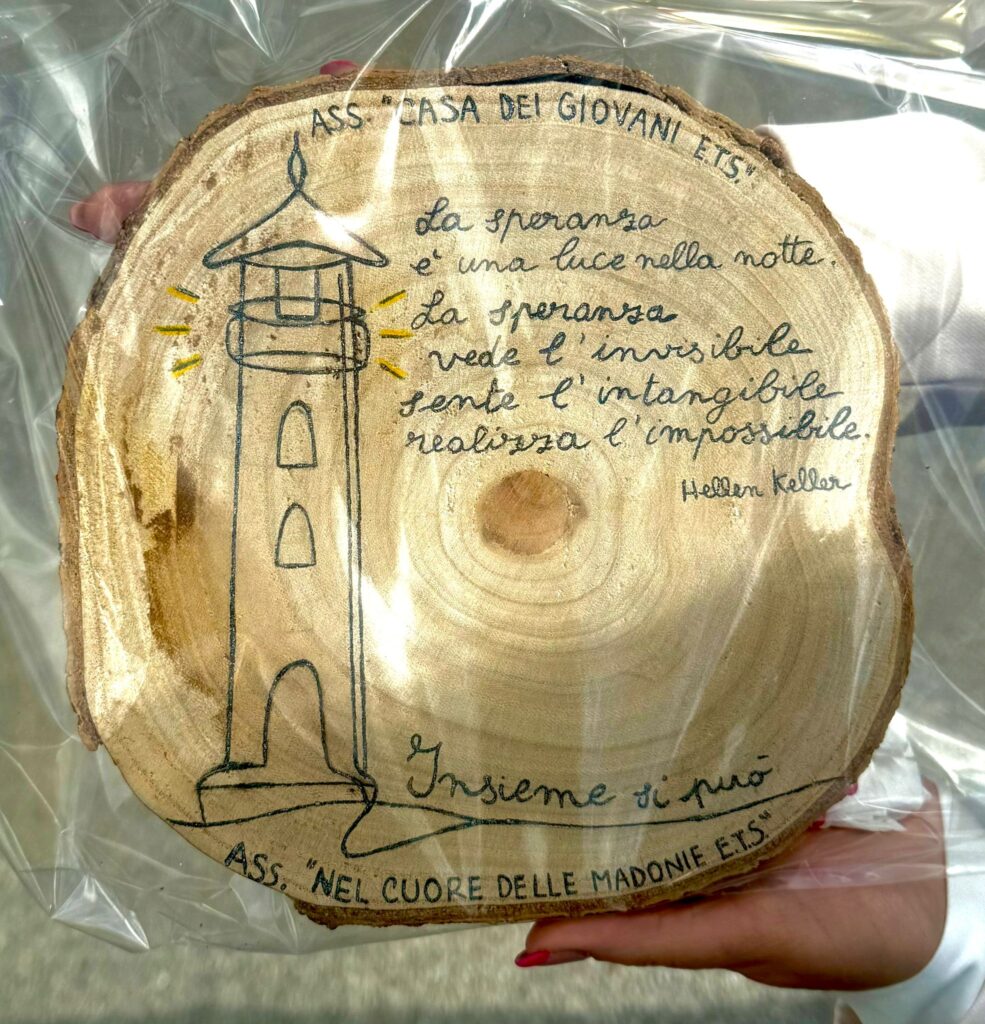 ASS. "CASA DEI GIOVANI E.T.S."
La speranza
e' una luce nella notte.
La speranza
vede l'invisibile
sente l'intangibile
realizza l'impossibile.
Hellen Keller
Insieme si può
ASS. "NEL CUORE DELLE MADONIE E.T.S."